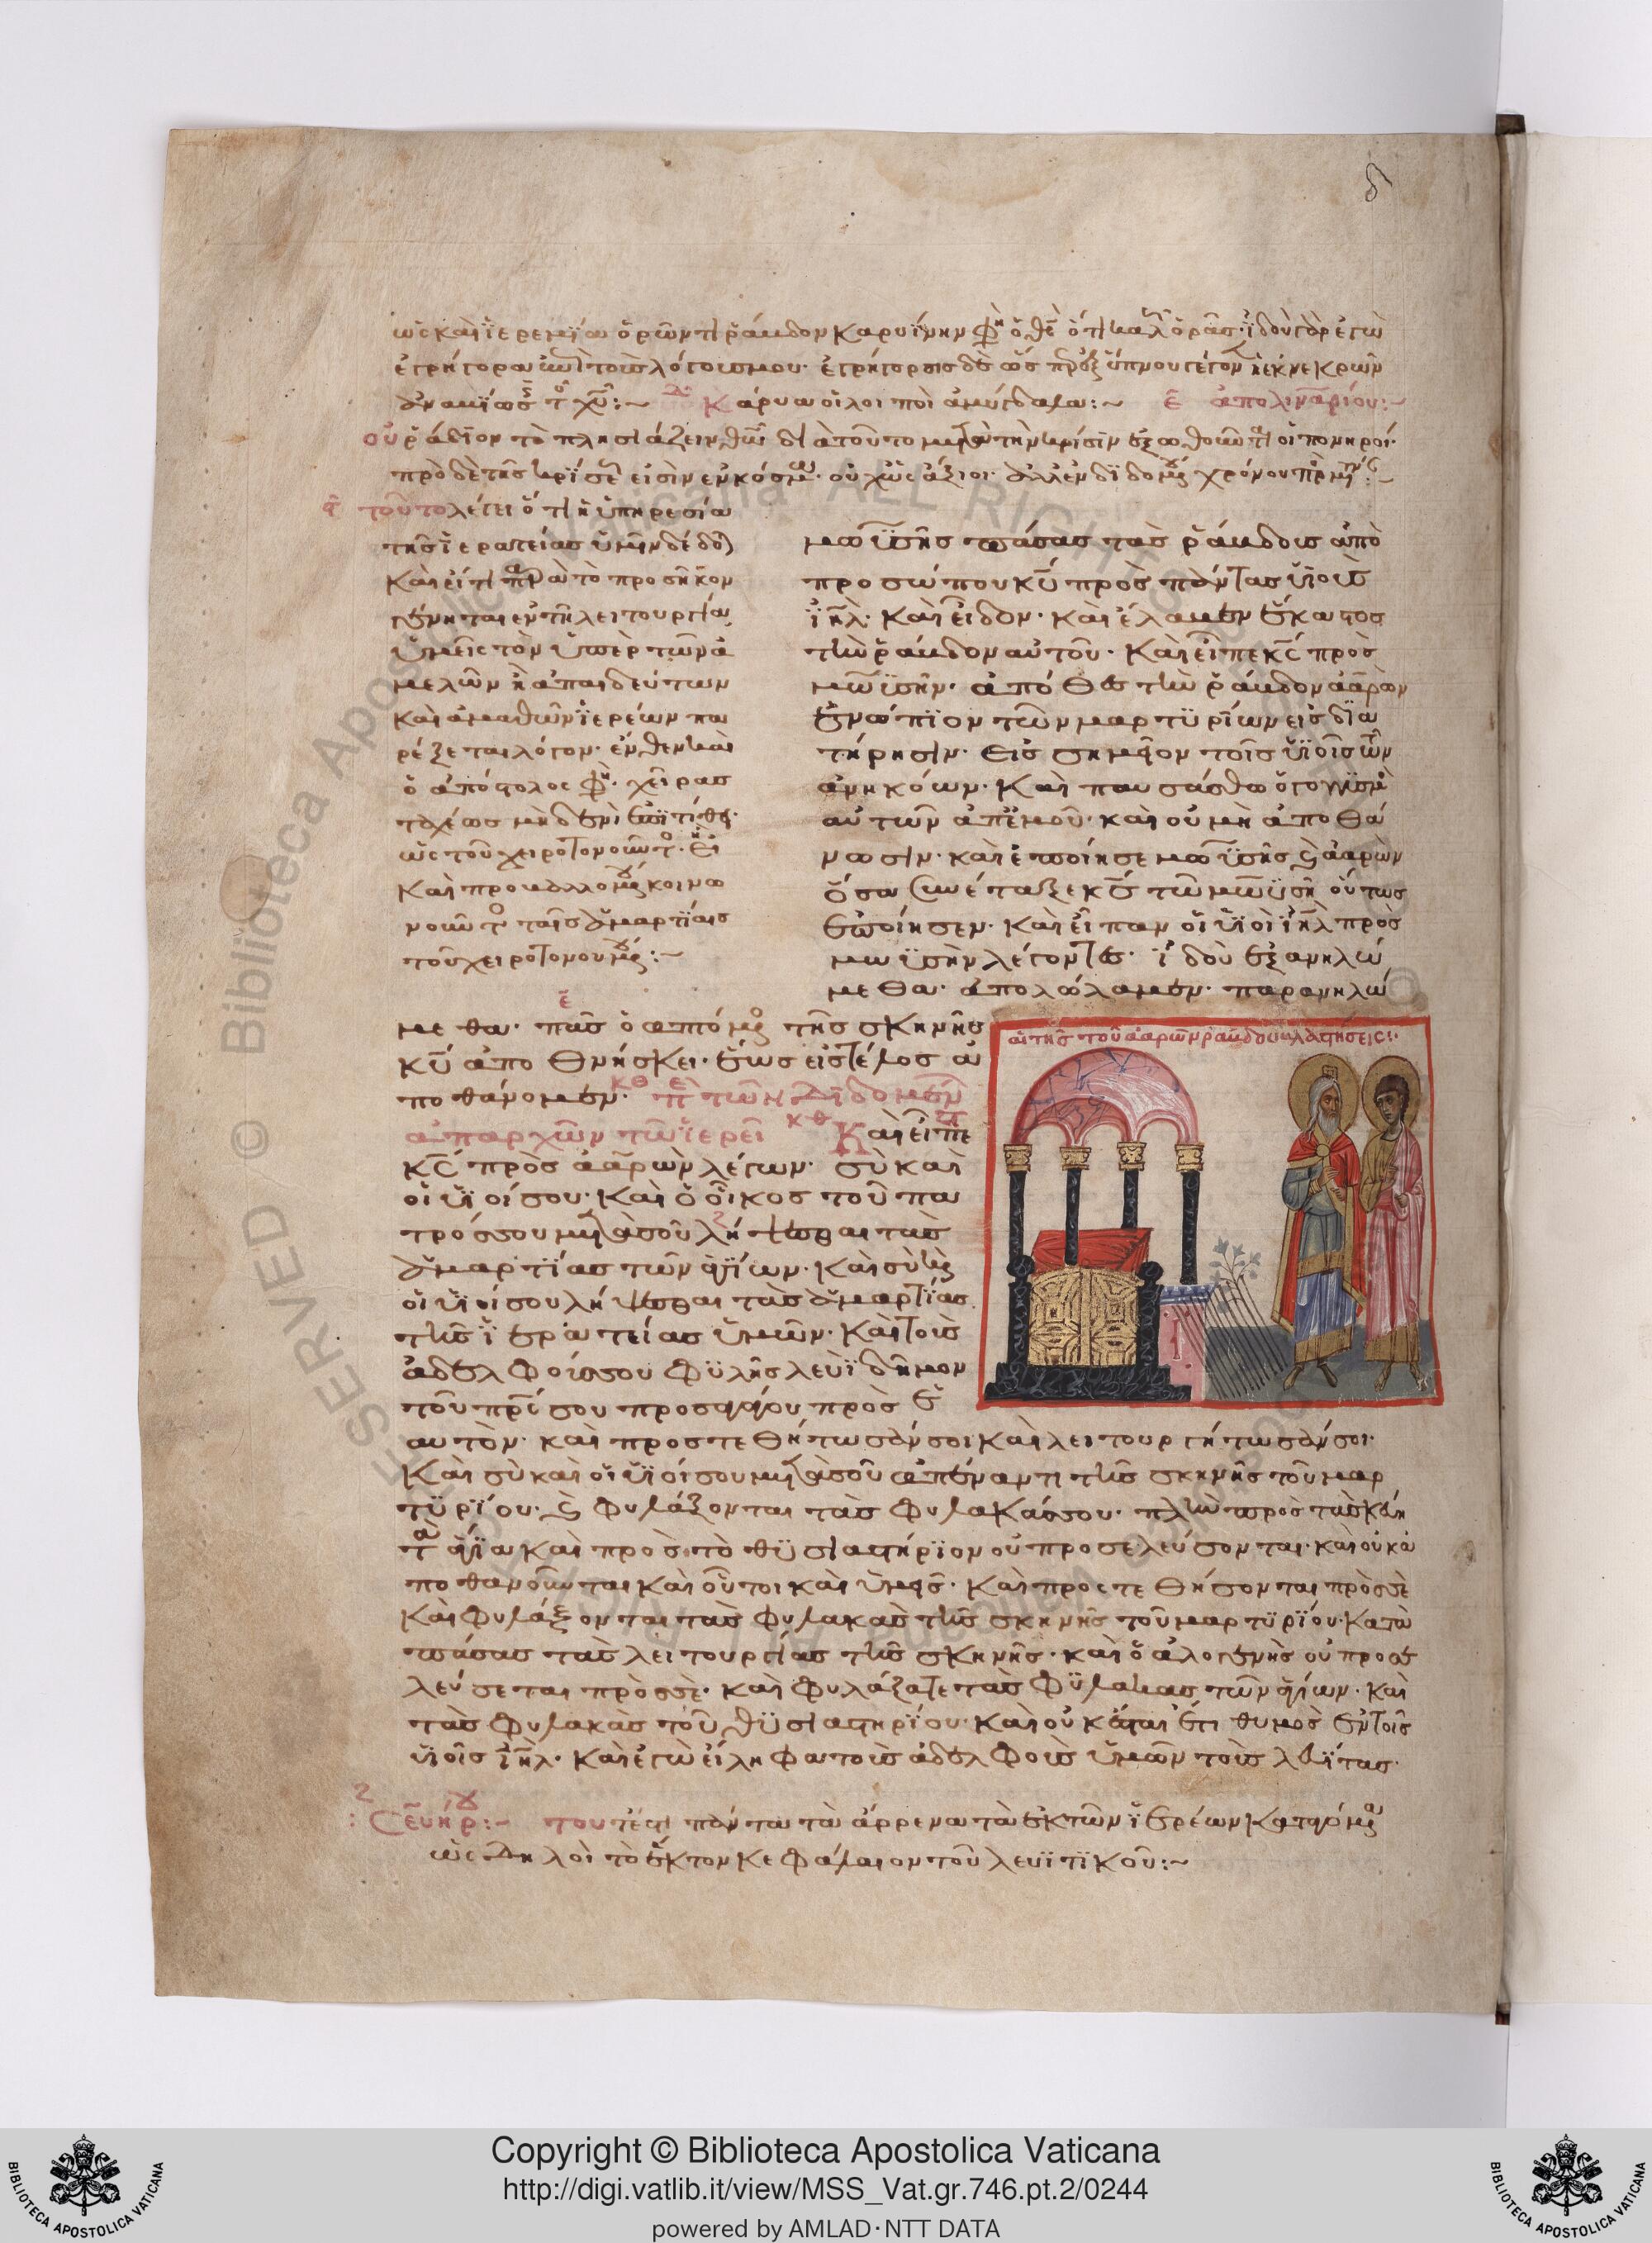 ὡς καὶ ἱερεμίας ὁρῶν τὴν ῥάβδον καρυΐνην φη ὁ θς ὅτι καλ ὁρᾶς· ἰδοὺ γὰρ ἐγὼ
ἐγρήγορα ἐπὶ τοὺς λόγους μου· ἐγρήγορσις δὲ ὡς ἐξ ὕπνου γέγονεν νεκρῶν
καρυα οἷλοι ποὶ ἀμύγδαλα:~ ε ἀπολιναρίου:~
οὐ ῥάδιον τὸ πλησιάζειν θω διατοῦτο μετὰ τὴν κρίσιν ἔξω θου οἱ πονηροί·
πρὸ δὲ τῆς κρίσε εἰσὶν ἐν κόσμ· οὐχ ὡς ἄξιοι· ἀλλ' ἐνδιδομε χρόνου
τοῦτο λέγει ὅτι ἡ ὑπηρεσία
τῆς ἱερατείας ὑμῖν δέδο
καὶ εἴ τι παρὰ τὸ προσῆκον
γένηται ἐν τῆ λειτουργία
ὑμεῖς τὸν ὑπὲρ τῶν ἀ
μελῶν ἢ ἀπαιδεύτων
καὶ ἀμαθῶν ἱερέων πα
ρέξεται λόγον· ἔνθεν καὶ
ὁ ἀπόστολος φη· χεῖρας
ταχέως μηδενὶ ἐπιτίθει·
ὡς τοῦ χειροτονοῦντ·
καὶ προβαλλομε κοινω
νοῦντ ταῖς ἁμαρτίαις
τοῦ χειροτονουμε:~
μωϋσῆς πάσας τὰς ῥάβδους ἀπὸ
προσώπου κυ πρὸς πάντας υἱοὺς
ιηλ· καὶ εἶδον· καὶ ἔλαβεν ἕκαστος
τὴν ῥάβδον αὐτοῦ· καὶ εἶπε κς πρὸς
μωϋσῆν· ἀπόθες τὴν ῥάβδον ἀαρὼν
ἐνώπιον τῶν μαρτυρίων εἰς δια
τήρησιν· εἰς σημεῖον τοῖς υἱοῖς τῶν
ἀνηκόων· καὶ παυσάσθω ὁ γογγυσμὸ
αὐτῶν ἀπ' ἐμοῦ· καὶ οὐ μὴ ἀποθά
νωσιν· καὶ ἐποίησε μωϋσῆς καὶ ἀαρὼν
ὅσα συνέταξε κς τῶ μωϋσῆ οὕτως
ἐποίησεν· καὶ εἶπαν οἱ υἱοὶ ιηλ πρὸς
μωϋσὴν λέγοντες· ἰδοὺ ἐξανηλώ
μεθα· ἀπολώλαμεν· παρανηλώ
μεθα· πᾶς ὁ ἁπτόμε τῆς σκηνῆς
κυ ἀποθνήσκει· ἕως εἰς τέλος ἀ
ποθάνομεν· τῶν διδομένων
ἀπαρχῶν τῶ ἱερεῖ κθ καὶ εἶπε
κς πρὸς ἀαρὼν λέγων· σὺ καὶ
οἱ υἱοί σου· καὶ ὁ οἶκος τοῦ πα
τρός σου μετὰ σοῦ λήψεσθαι τὰς
ἁμαρτίας τῶν ἁγίων· καὶ σὺ καὶ
οἱ υἱοί σου λήψεσθαι τὰς ἁμαρτίας
τῆς ἱερατείας ὑμῶν· καὶ τοὺς
ἀδελφούς σου φυλῆς λευῒ δῆμον
τοῦ πρς σου προσαγάγου πρὸς σε
αυτὸν· καὶ προστεθήτωσάν σοι καὶ λειτουργήτωσάν σοι·
καὶ σὺ καὶ οἱ υἱοί σου μετὰ σοῦ ἀπέναντι τῆς σκηνῆς τοῦ μαρ
τυρίου· καὶ φυλάξονται τὰς φυλακάς σου· πλὴν πρὸς τὰ σκεύη
τὰ ἅγια καὶ πρὸς τὸ θυσιαστήριον οὐ προσελεύσονται· καὶ οὐκ ἀ
ποθανοῦνται καὶ οὗτοι καὶ ὑμεῖς· καὶ προστεθήσονται πρὸς σὲ
καὶ φυλάξονται τὰς φυλακὰς τῆς σκηνῆς τοῦ μαρτυρίου· κατὰ
πάσας τὰς λειτουργίας τῆς σκηνῆς· καὶ ὁ ἀλογενὴς οὐ προσε
λεύσεται πρὸς σὲ· καὶ φυλάξατε τὰς φυλακὰς τῶν ἁγίων· καὶ
τὰς φυλακὰς τοῦ θυσιαστηρίου· καὶ οὐκ ἔσται ἔτι θυμὸς ἐν τοῖς
υἱοῖς ιηλ· καὶ ἐγὼ εἴληφα τοὺς ἀδελφοὺς ὑμῶν τοὺς λευΐτας·
ἡ τῆς τοῦ ἀαρὼν ῥάβδου βλάστησεις:·
σευηρ:~ τουτέστι πάντα τὰ ἄρρενα τὰ ἐκ τῶν ἱερέων
ὡς δηλοῖ τὸ ἕκτον κεφάλαιον τοῦ λευϊτικοῦ:~
Copyright © Biblioteca Apostolica Vaticana
http://digi.vatlib.it/view/MSS_Vat.gr.746.pt.2/0244
powered by AMLAD·NTT DATA
BIBLIOTECA APOSTOLICA VATICANA
BIBLIOTECA APOSTOLICA VATICANA